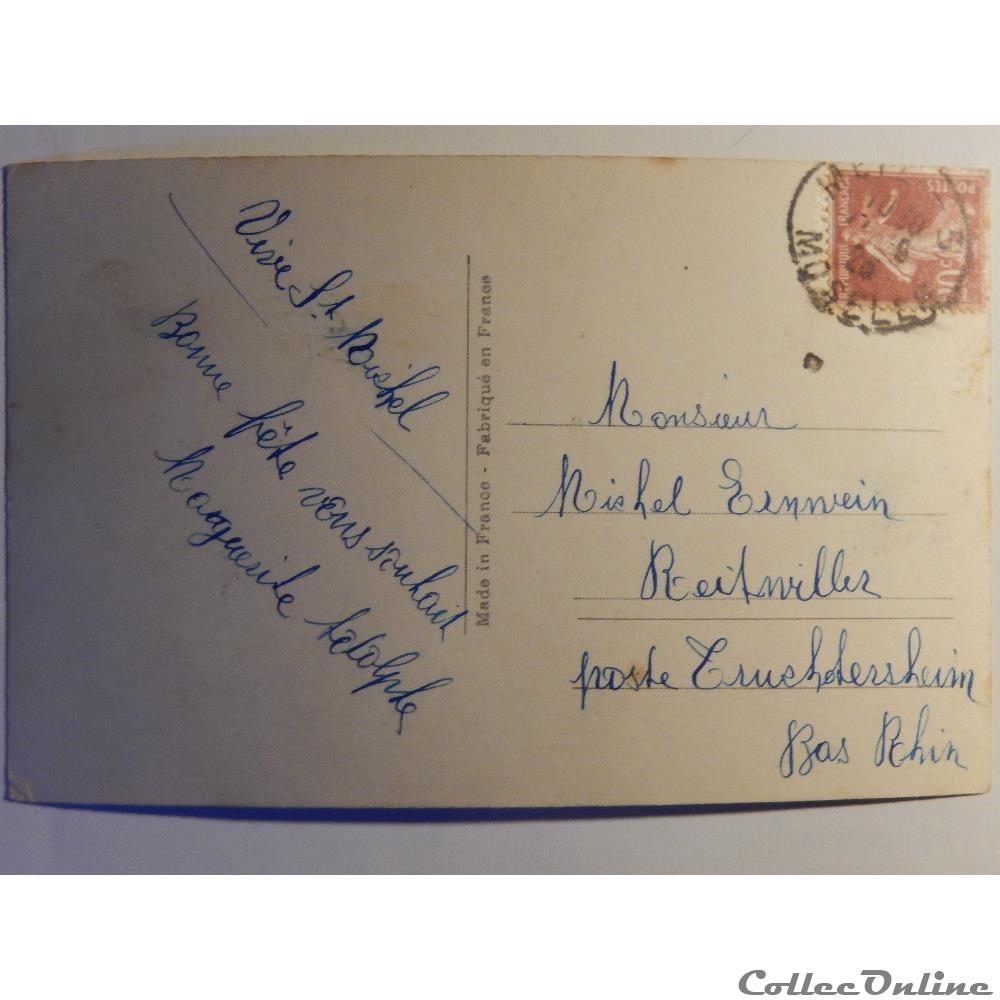 Vive St. Michel
Bonne fête vous souhait
Marguerite Adolphe
Made in France - Fabriqué en France
POSTES
RÉPUBLIQUE FRANÇAISE
MOSELLE
Monsieur
Michel Ernwein
Reitwiller
poste Truchtersheim
Bas Rhin
CollecOnline